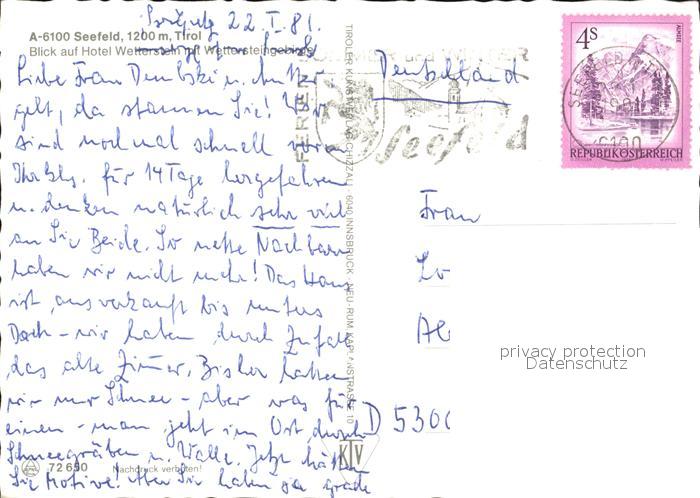 22. I. 81.
A-6100 Seefeld, 1200 m, Tirol
Blick auf Hotel Wetterstein mit Wettersteingebirge
Liebe Frau Dembski u. Mutter
gelt, da staunen Sie! Wir
sind noch mal schnell vorm
für 14 Tage hergefahren
u. denken natürlich sehr viel
an Sie Beide. So nette Nachbarn
haben wir nicht mehr! Das Haus
ist ausverkauft bis unters
Dach - wir haben durch Zufall
das alte Zimmer. Bisher hatten
wir nur Schnee - aber was für
einen - man geht im Ort durch
Schneegräben u. Wälle. Jetzt hätten
72 650 Nachdruck verboten!
Sie Motive! Aber Sie haben ja grade
TIROLER KUNSTVERLAG CHIZZALI, 6040 INNSBRUCK, NEU-RUM, KAPLANSTRASSE 10
KTV
Deutschland
FERIEN
Seefeld
4 S
ALMSEE
REPUBLIK ÖSTERREICH
6100
Frau
D 5300
privacy protection
Datenschutz